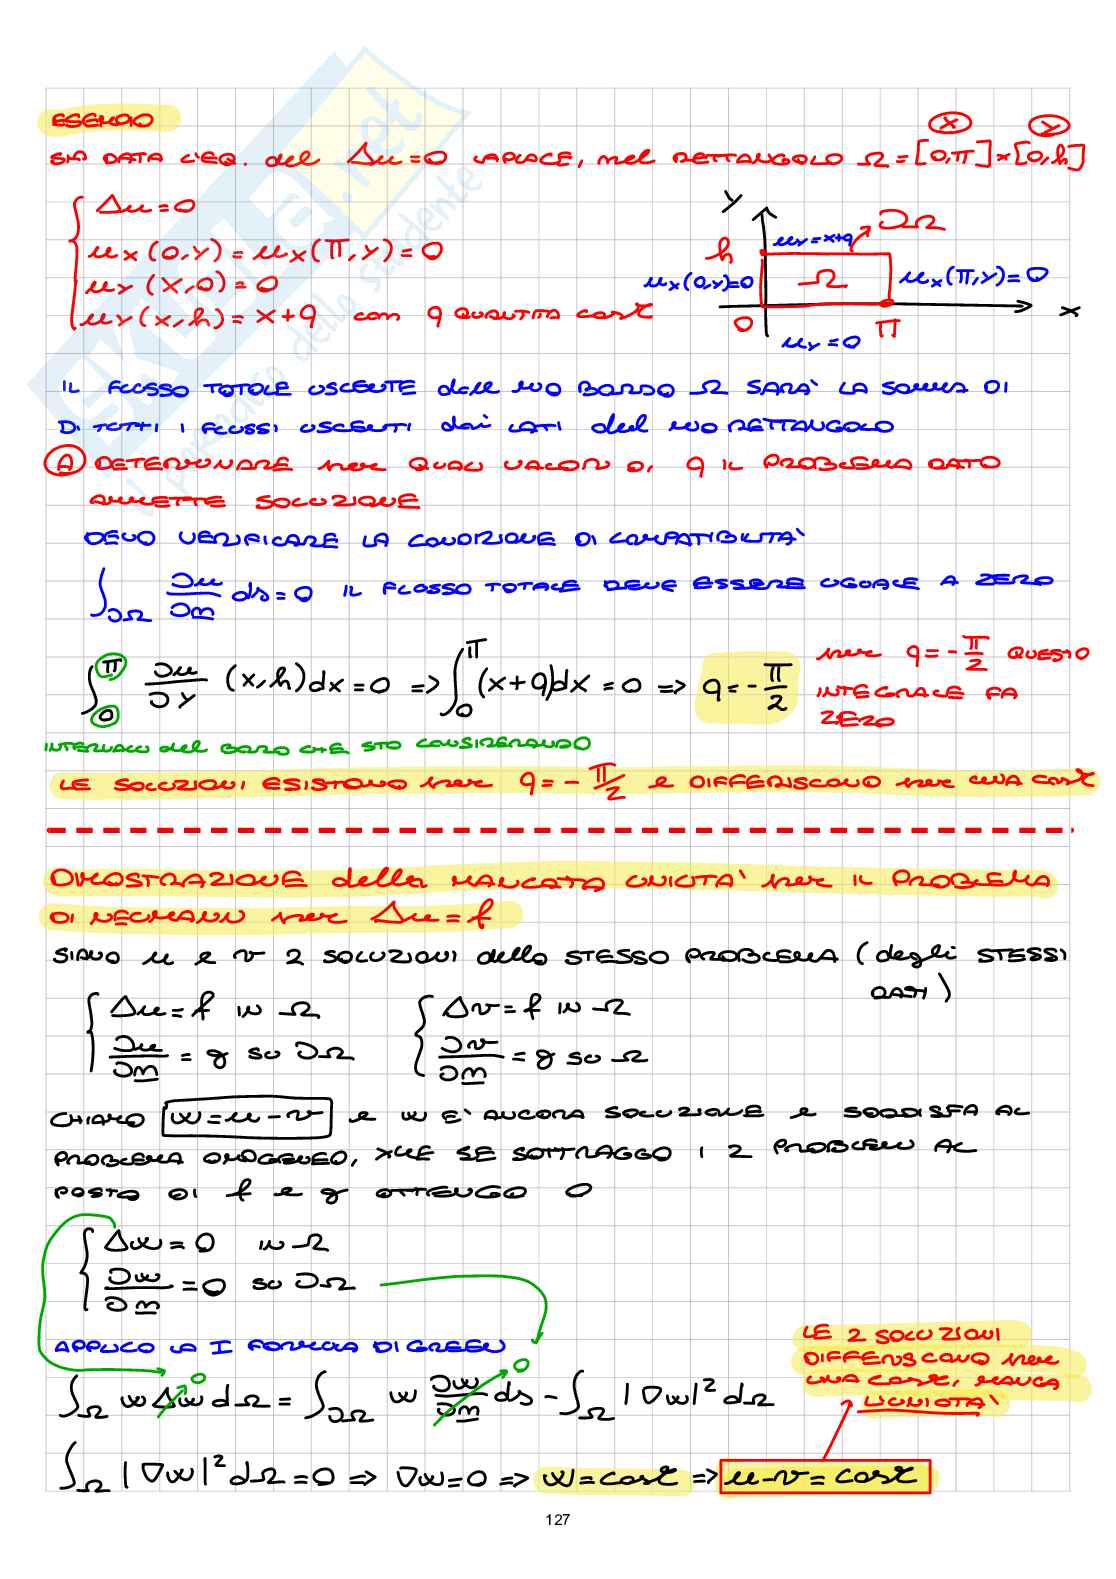 ESEMPIO
SIA DATA L'EQ. del Δu=0 LAPLACE, nel RETTANGOLO Ω=[0,π]×[0,h]
X Y
Δu=0
u_x(0,y)=u_x(π,y)=0
u_y(x,0)=0
u_y(x,h)=x+q con q QUANTITÀ cost
y
h
u_y=x+q
∂Ω
u_x(0,y)=0
Ω
u_x(π,y)=0
0
π
x
u_y=0
IL FLUSSO TOTALE USCENTE dal suo BORDO Ω SARA' LA SOMMA DI
DI TUTTI I FLUSSI USCENTI dai LATI del suo RETTANGOLO
A DETERMINARE per QUALI VALORI DI q IL PROBLEMA DATO
AMMETTE SOLUZIONE
DEVO VERIFICARE LA CONDIZIONE DI COMPATIBILITA'
∫_∂Ω ∂u/∂n ds=0 IL FLUSSO TOTALE DEVE ESSERE UGUALE A ZERO
∫_0^π ∂u/∂y (x,h)dx=0 => ∫_0^π (x+q)dx=0 => q=-π/2
per q=-π/2 QUESTO
INTEGRALE FA
ZERO
INTERVALLI del BORDO CHE STO CONSIDERANDO
LE SOLUZIONI ESISTONO per q=-π/2 e DIFFERISCONO per UNA cost
DIMOSTRAZIONE della MANCATA UNICITA' per IL PROBLEMA
DI NEUMANN per Δu=f
SIANO u e v 2 SOLUZIONI dello STESSO PROBLEMA (degli STESSI
DATI)
Δu=f IN Ω
∂u/∂n=g SU ∂Ω
Δv=f IN Ω
∂v/∂n=g SU Ω
CHIAMO w=u-v e w E' ANCORA SOLUZIONE e SODDISFA AL
PROBLEMA OMOGENEO, XCHE SE SOTTRAGGO I 2 PROBLEMI AL
POSTO DI f E g OTTENGO 0
Δw=0 IN Ω
∂w/∂n=0 SU ∂Ω
APPLICO LA I FORMULA DI GREEN
∫_Ω w Δw dΩ = ∫_∂Ω w ∂w/∂n ds - ∫_Ω |∇w|² dΩ
0
0
LE 2 SOLUZIONI
DIFFERISCONO per
UNA cost, MANCA
L'UNICITA'
∫_Ω |∇w|² dΩ=0 => ∇w=0 => w=cost => u-v=cost
127
SKUOLA.net
il paradiso dello studente